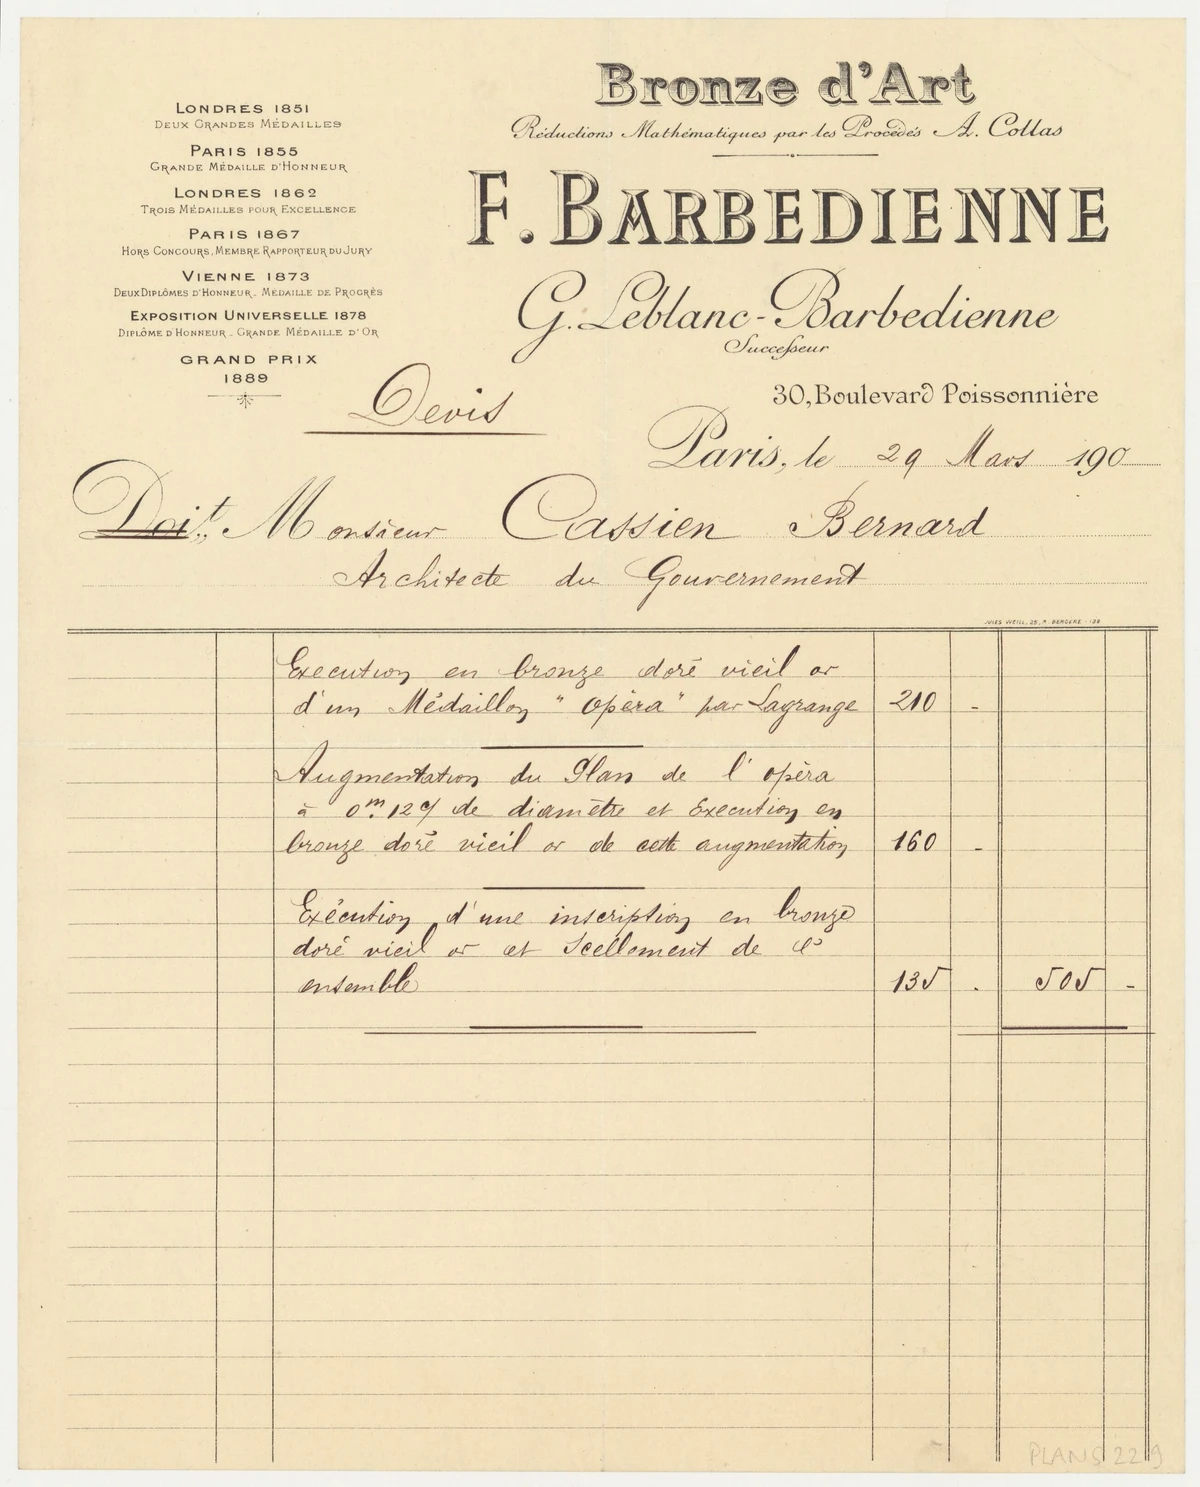 LONDRES 1851
DEUX GRANDES MÉDAILLES
PARIS 1855
GRANDE MÉDAILLE D'HONNEUR
LONDRES 1862
TROIS MÉDAILLES POUR EXCELLENCE
PARIS 1867
HORS CONCOURS, MEMBRE RAPPORTEUR DU JURY
VIENNE 1873
DEUX DIPLÔMES D'HONNEUR - MÉDAILLE DE PROGRÈS
EXPOSITION UNIVERSELLE 1878
DIPLÔME D'HONNEUR - GRANDE MÉDAILLE D'OR
GRAND PRIX
1889
Bronze d'Art
Réductions Mathématiques par les Procédés A. Collas
F. BARBEDIENNE
G. Leblanc-Barbedienne
Successeur
30, Boulevard Poissonnière
Devis
Paris, le 29 Mars 190
Doit, Monsieur Cassien Bernard
Architecte du Gouvernement
JULES WEILL, 25, R. BERGÈRE
Execution en bronze doré vieil or
d'un Médaillon "opèra" par Lagrange 210 -
Augmentation du Plan de l'opèra
à 0m.12c/ de diamètre et Execution en
bronze doré vieil or de cette augmentation 160 -
Exécution d'une inscription en bronze
doré vieil or et Scellement de l'
ensemble 135 . 505 -
PLANS 229